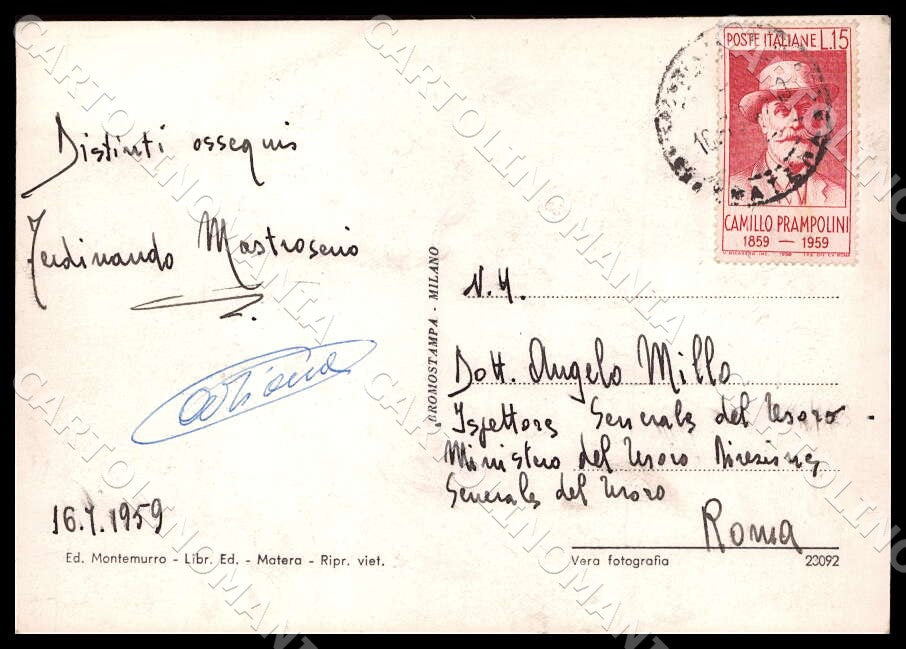 POSTE ITALIANE L.15
CAMILLO PRAMPOLINI
1859 — 1959
MATERA
Distinti ossequi
Ferdinando Mastroserio
16.7.1959
Ed. Montemurro - Libr. Ed. - Matera - Ripr. viet.
BROMOSTAMPA - MILANO
N.H.
Dott. Angelo Milla
Ispettore Generale del Tesoro
Ministero del Tesoro Direzione
Generale del Tesoro
Roma
Vera fotografia 23092
CARTOLINOMANIA